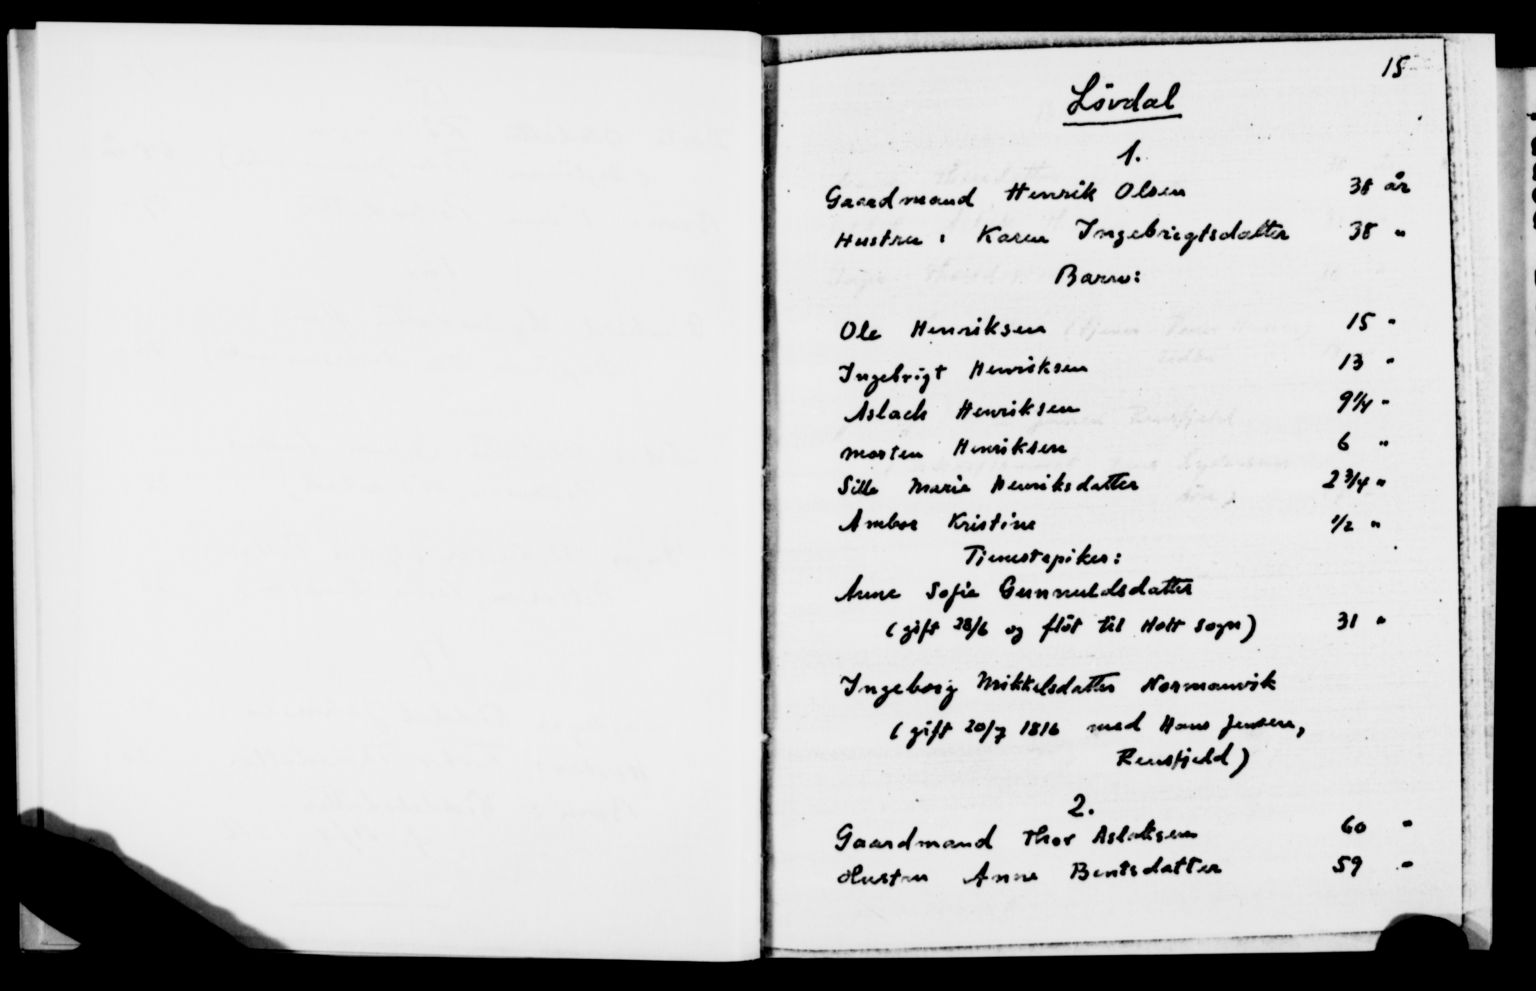 15
Lövdal
1.
Gaardmand Henrik Olsen 38 år
Hustru : Karen Ingebrigtsdatter 38 "
Barn:
Ole Henriksen 15 "
Ingebrigt Henriksen 13 "
Aslach Henriksen 9 1/4 "
Morten Henriksen 6 "
Sille Marie Henriksdatter 2 3/4 "
Kristine 1/2 "
Tjenestepiker:
Anne Sofie Gunnuldsdatter
(gift 28/6 og flöt til Holt sogn) 31 "
Ingeborg Mikkelsdatter Normanvik
(gift 20/7 1816 med Hans Jensen,
Rensfjeld)
2.
Gaardmand Thor Aslaksen 60 "
Hustru Anne Bentsdatter 59 "